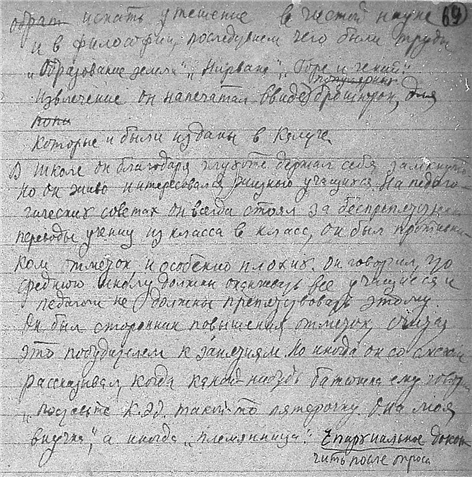 69
обрат искать утешение в чистой науке
и в философии, последствием чего были труды
„Образование земли", „Нирвана", „Горе и гений".
популярных
Извлечение он напечатал в виде брошюрок, для
попи
которые и были изданы в Калуге
В школе он благодаря глухоте держал себя замкнуто
Но он живо интересовался учащихся. На педаго-
гических советах он всегда стоял за беспрепятственные
переводы учениц из класса в класс, он был противни-
ком отметок, и особенно плохих. Он говорил, что
среднюю школу должны окончить все учащиеся и
педагоги не должны препятствовать этому.
Он был сторонник повышения отметок, считая
это побудителем к занятиям. Но иногда он со смехом
рассказывал, когда какой нибудь батюшка ему говор
„поставьте К.Э., такой то пятерочку. Она моя
внучка", а иногда „племянница". Епархиальное докон
чить после опроса